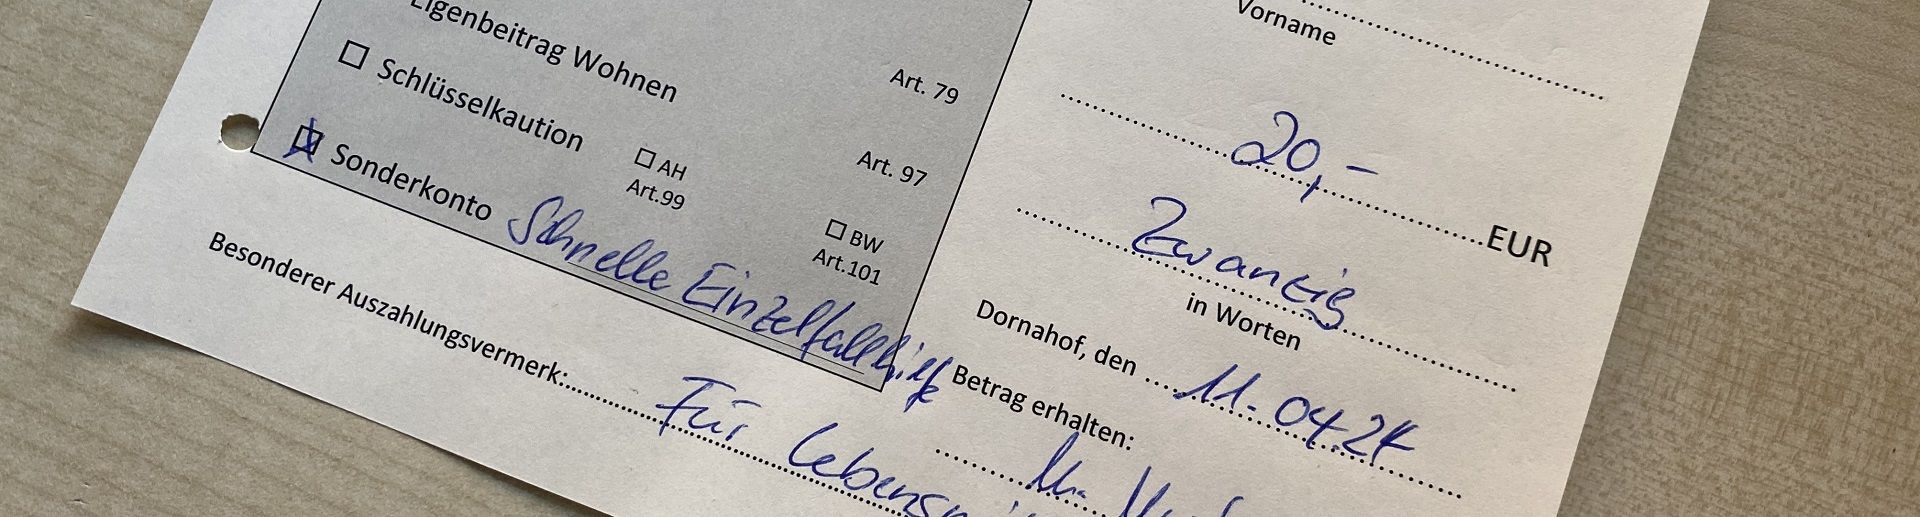 Eigenbeitrag Wohnen Art. 79
☐ Schlüsselkaution Art. 97
☐ AH
Art.99
☐ BW
Art.101
☒ Sonderkonto Schnelle Einzelfallhilfe
Besonderer Auszahlungsvermerk: Für
Vorname
20,- EUR
Zwanzig
in Worten
Dornahof, den 11.04.24
Betrag erhalten: